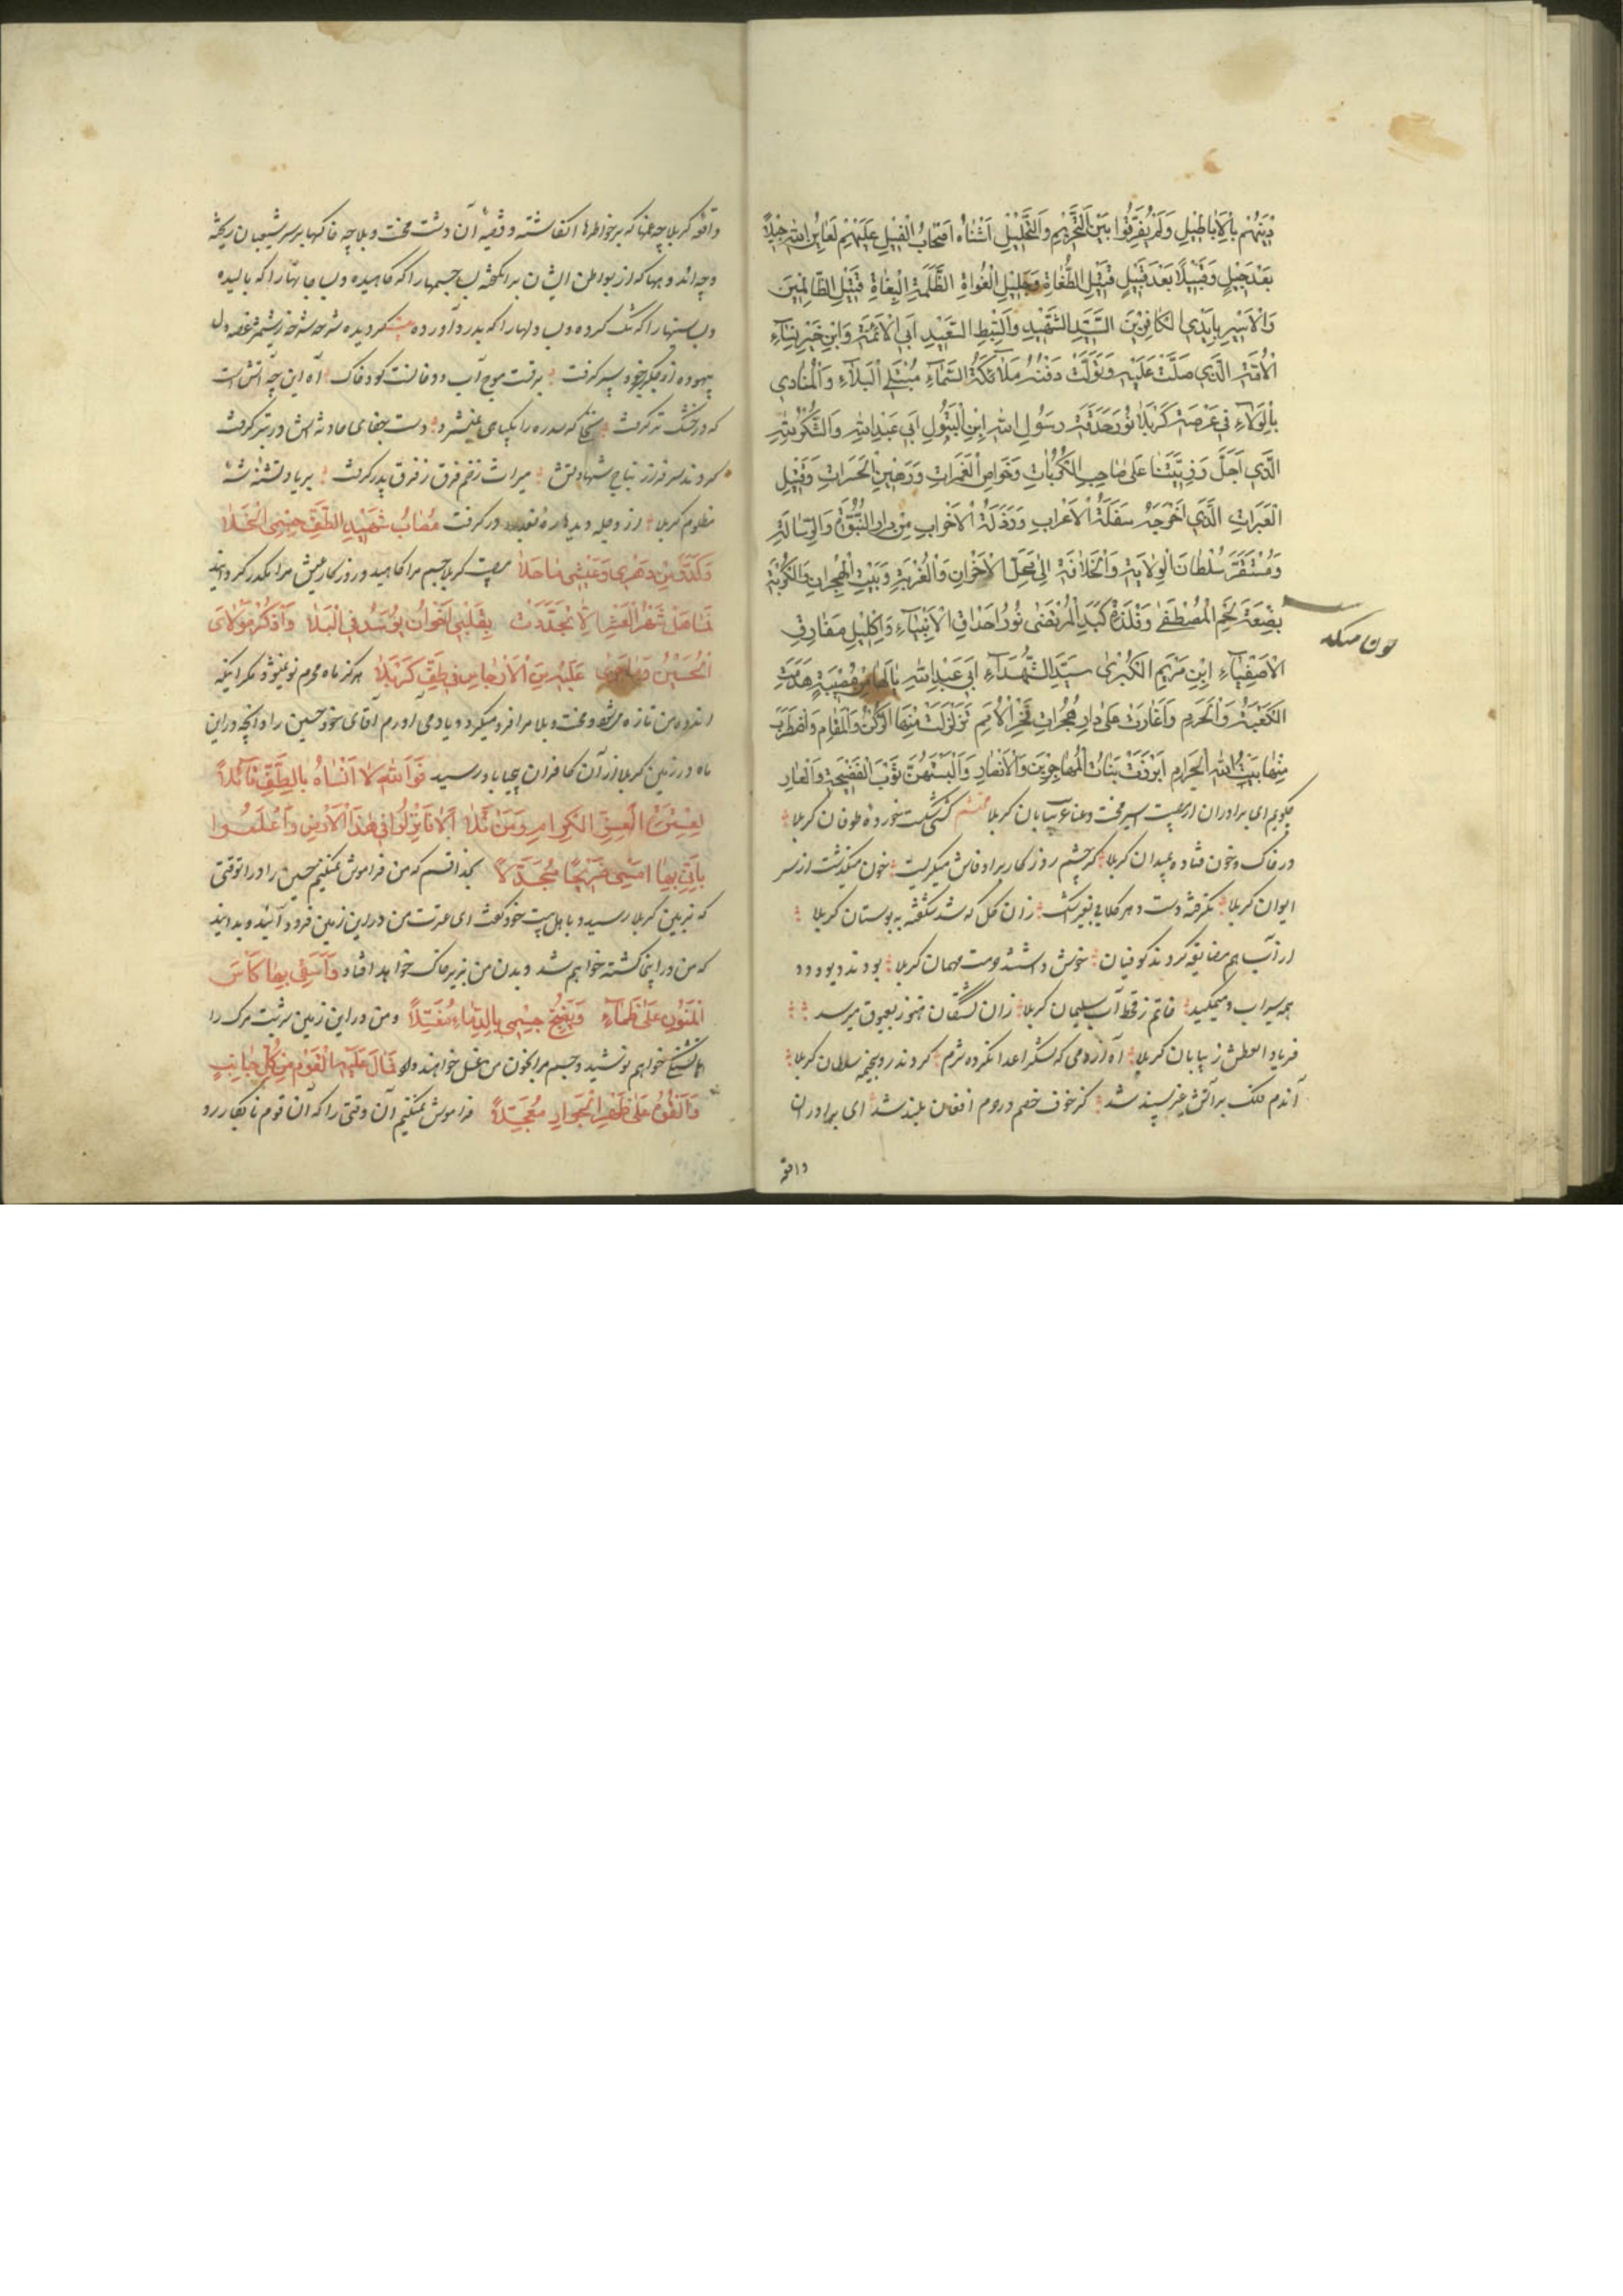 دِينَهُم بِالاَباطِيلِ وَلَمْ يُفَرِّقُوا بَيْنَ التَّحْرِيمِ وَالتَّحْلِيلِ اَشْباهُ اَصْحابُ الْفِيلِ عَلَيْهِمْ لَعايِنُ اللهِ جِيلاً
بَعْدَ جِيلٍ وَقَبِيلاً بَعْدَ قَبِيلٍ قَتِيلِ الطُّغاةِ وَجَلِيلِ الْغُواةِ الظَّلَمَةِ الْبُغاةِ قَتِيلِ الظّالِمِينَ
وَالْاَسِيرِ بِاَيْدِي الْكافِرِينَ السَّيِّدِ الشَّهِيدِ وَالسِّبْطِ السَّعِيدِ اَبِي الْاَئِمَّةِ وَابْنِ خَيْرِ نِساءِ
الْاُمَّةِ الَّذِي صَلَّتْ عَلَيْهِ وَتَوَلَّتْ دَفْنَهُ مَلائِكَةُ السَّماءِ مُبْتَلَى الْبَلاءِ وَالْمُنادِي
بِالْوَلاءِ فِي عَرْصَةِ كَرْبَلا نُورِ حَدَقَةِ رَسُولِ اللهِ ابْنِ الْبَتُولِ اَبِي عَبْدِ اللهِ وَالشُّكْرُ لِلّهِ
الَّذِي اَجَلَّ رَزِيَّتَنا عَلى صاحِبِ الْكُرُباتِ وَخَواضِ الْغَمَراتِ وَرَهِينِ الْحَسَراتِ وَقَتِيلِ
الْعَبَراتِ الَّذِي اَخْرَجَهُ سَفَلَةُ الْاَعْرابِ وَرَذَلَةُ الْاَحْزابِ مِنْ دارِ النُّبُوَّةِ وَالرِّسالَةِ
وَمُسْتَقَرِّ سُلْطانِ الْوِلايَةِ وَالْخِلافَةِ اِلى مَحَلِّ الْاَحْزانِ وَالْغُرْبَةِ وَبَيْتِ الْهِجْرانِ وَالْكُرْبَةِ
بِضْعَةِ لَحْمِ الْمُصْطَفى وَفَلْذَةِ كَبَدِ الْمُرْتَضى نُورِ اَحْداقِ الْاَنْبِياءِ وَاِكْلِيلِ مَفارِقِ
الْاَصْفِياءِ ابْنِ مَرْيَمِ الْكُبْرى سَيِّدِ الشُّهَداءِ اَبِي عَبْدِ اللهِ يا لَها مِنْ مُصِيبَةٍ هَدَمَتِ
الْكَعْبَةَ وَالْحَرَمِ وَاَغارَتْ عَلى دارِ حُجُراتِ فَخْرِ الْاُمَمِ تَزَلْزَلَتْ مِنْهَا الرُّكْنُ وَالْمَقامِ وَاضْطَرَبَ
مِنْها بَيْتُ اللهِ الْحَرامِ اَبْرَزَتْ بَناتُ الْمُهاجِرِينَ وَالْاَنْصارِ وَاَلْبَسَتْهُنَّ ثَوْبَ الْفَضِيحَةِ وَالْعارِ
چگویم ای برادران از مصیبت اسیر محنت وعناء بیابان کربلا محتشم کشتی شکست خورده طوفان کربلا
در خاک وخون فتاده بمیدان کربلا گر چشم روزگار براو فاش میگریست خون میگذشت از سر
ایوان کربلا نگرفته دست دهر گلابی بغیر اشک زان گل که شد شکفته به بوستان کربلا
از آب هم مضایقه کردند کوفیان خوش داشتند حرمت مهمان کربلا بودند دیو و دد
همه سیراب ومیمکید خاتم زقحط آب سلیمان کربلا زان تشنگان هنوز بعیوق میرسد
فریاد العطش ز بیابان کربلا آه از دمی که لشکر اعدا نکرده شرم کردند رو بخیمه سلطان کربلا
آندم فلک برآتش غیرت سپند شد کز خوف خصم در حرم افغان بلند شد ای برادران
واقعه
واقعه کربلا چه غمها که برخواطرها انگاشته وقضیه آن دشت محنت وبلا چه خاکها برسر شیعیان ریخته
وچه اندوهها که از بواطن ایشان برانگیخته بس جسمها را که کاهیده وبس جانها را که بالیده
وبس سینها را که تنگ کرده وبس دلها را که بدرد آورده
که در خشک و تر گرفت
کردند سرفراز بتاج شهادتش میراث زخم فرق ز فرق پدر گرفت بریاد تشنه
مظلوم کربلا از دجله دیدها ره در گرفت مُصابُ شَهِيدِ الطَّفِّ جِسْمِي اَنْحَلا
وَكَدَّرَ مِنْ دَهْرِي وَعَيْشِي ما حَلا مصیبت کربلا جسم مرا کاهید و روزگار عیش مرا مکدر گردانید
فَما هَلَّ شَهْرُ الْعَشْرِ اِلّا تَجَدَّدَتْ بِقَلْبِي اَحْزانٌ تُوَسَّدُ فِي الْبَلا وَاَذْكُرُ مَوْلايَ
الْحُسَيْنَ وَما جَرى عَلَيْهِ مِنَ الْاَرْجاسِ فِي طَفِّ كَرْبَلا هرگز ماه محرم نو نمیشود مگر اینکه
اندوه من تازه میشود ومحنت وبلا مرا فرو میگیرد و یاد می آورم آقای خود حسین را وآنچه در این
ماه در زمین کربلا از آن کافران بیجا باو رسید فَوَاللهِ لا اَنْساهُ بِالطَّفِّ قائِلاً
لِعِتْرَتِهِ الْغُرِّ الْكِرامِ وَمَنْ تَلا اَلا فَانْزِلُوا فِي هذَا الْاَرْضِ وَاعْلَمُوا
بِاَنِّي بِها اَمْسِي صَرِيعاً مُجَدَّلاً بخدا قسم که من فراموش نمیکنم حسین را در آنوقتی
که بزمین کربلا رسید و باهل بیت خود گفت ای عترت من در این زمین فرود آئید و بدانید
که من در اینجا کشته خواهم شد وبدن من بزیر خاک خواهد افتاد وَاُسْقى بِها كَأْسَ
الْمَنُونِ عَلى ظَماءٍ وَيُصْبِحُ جِسْمِي بِالدِّماءِ مُغَسَّلاً ومن در این زمین شربت مرگ را
با تشنگی خواهم نوشید وجسم مرا بخون من غسل خواهند داد فَمالَ عَلَيْهِ الْقَوْمُ مِنْ كُلِّ جانِبٍ
وَاَلْقُوهُ عَلى ظَهْرِ الْجَوادِ مُعَجَّلاً فراموش نمیکنم آن وقتی را که آن قوم نابکار رو